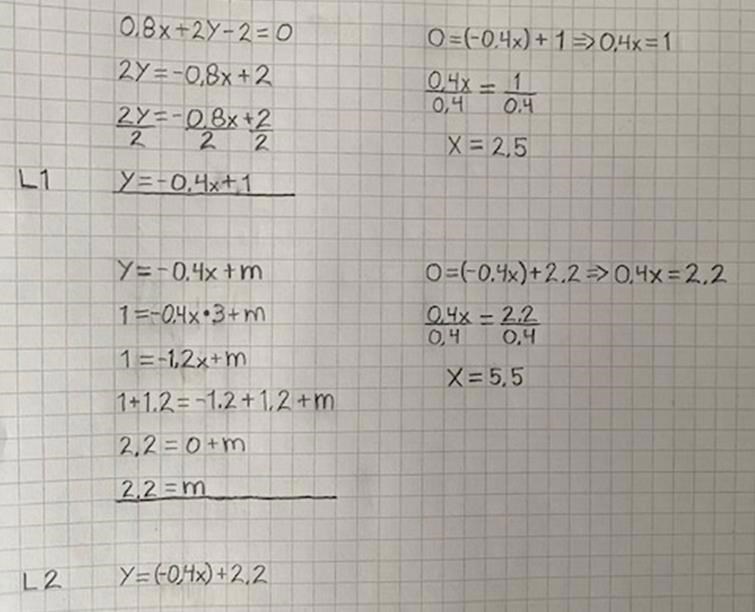 0,8x+2Y-2=0
2Y=-0,8x+2
2Y/2=-0,8x/2+2/2
L1 Y=-0,4x+1
0=(-0,4x)+1⇒0,4x=1
0,4x/0,4=1/0,4
X=2,5
Y=-0,4x+m
1=-0,4x•3+m
1=-1,2x+m
1+1,2=-1,2+1,2+m
2,2=0+m
2,2=m
0=(-0,4x)+2,2⇒0,4x=2,2
0,4x/0,4=2,2/0,4
X=5,5
L2 Y=(-0,4x)+2,2